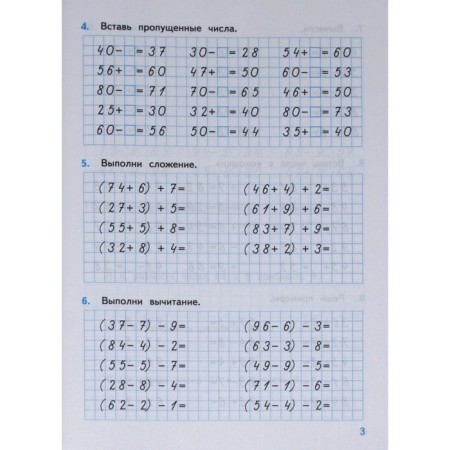 4. Вставь пропущенные числа.
40-□=37 30-□=28 54+□=60
56+□=60 47+□=50 60-□=53
80-□=71 70-□=65 46+□=50
25+□=30 32+□=40 80-□=73
60-□=56 50-□=44 35+□=40
5. Выполни сложение.
(74+6)+7= (46+4)+2=
(27+3)+5= (61+9)+6=
(55+5)+8= (83+7)+9=
(32+8)+4= (38+2)+3=
6. Выполни вычитание.
(37-7)-9= (96-6)-3=
(84-4)-2= (63-3)-8=
(55-5)-7= (49-9)-5=
(28-8)-4= (71-1)-6=
(62-2)-1= (54-4)-2=
3